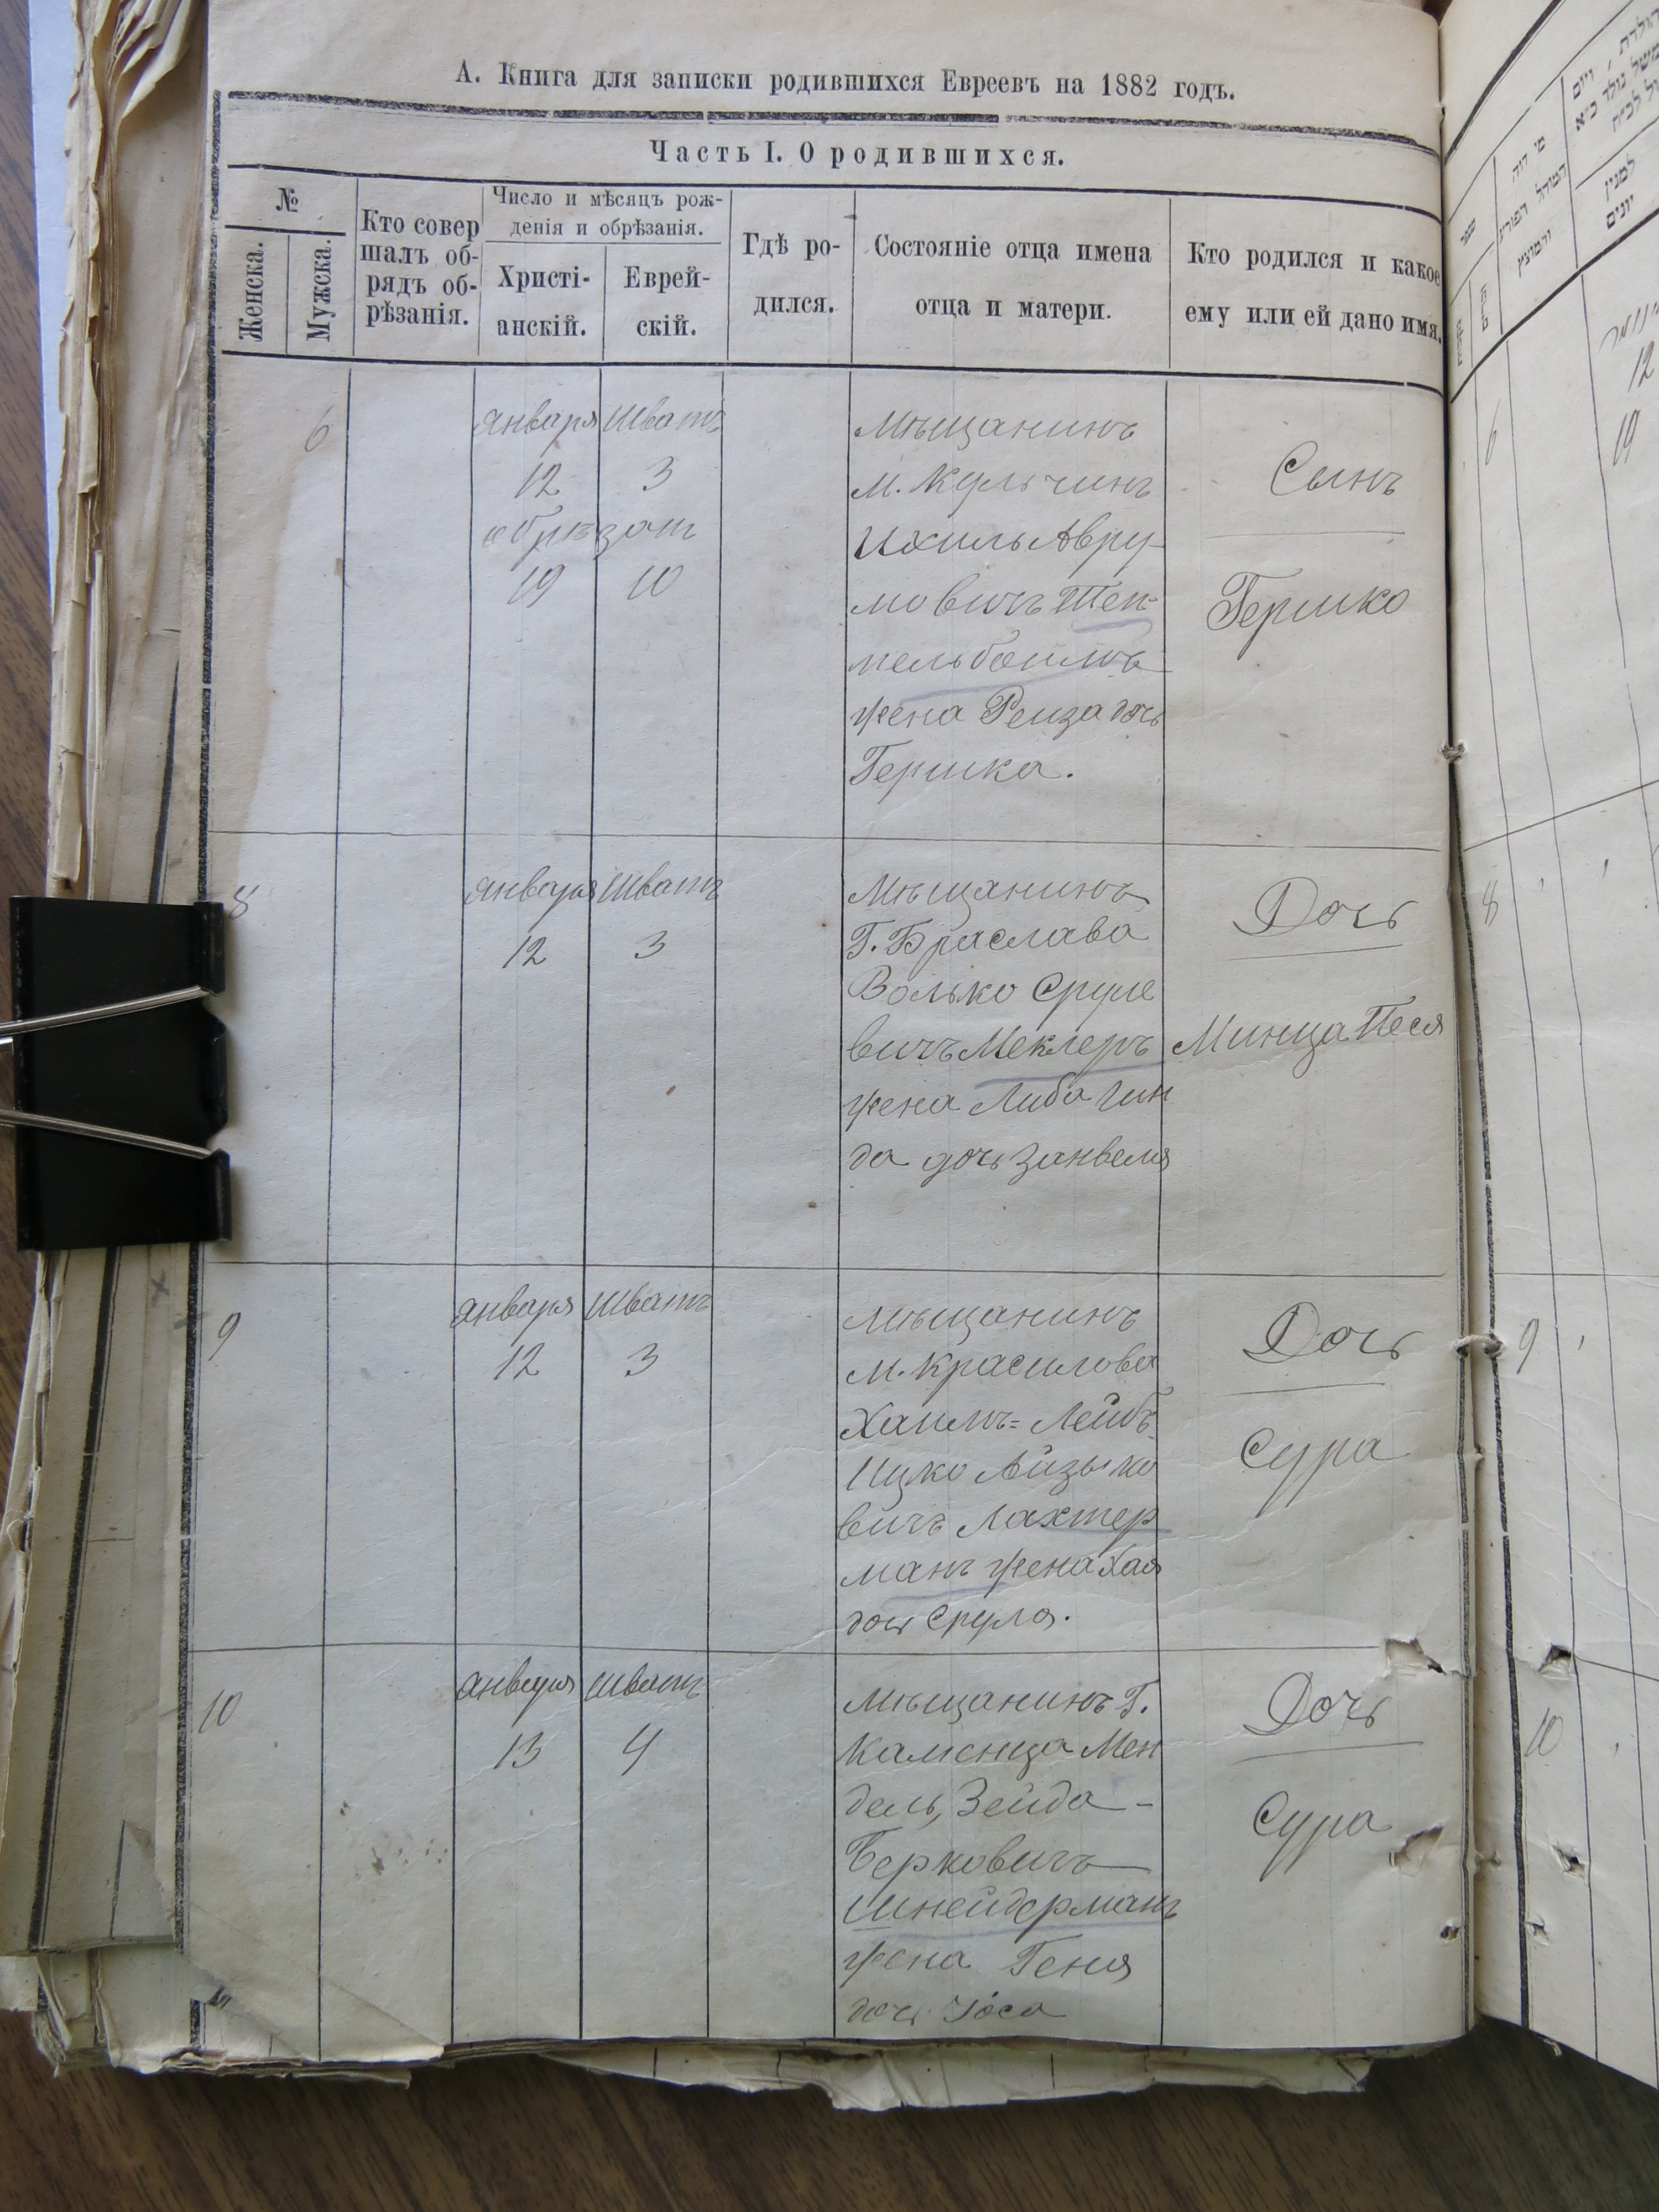 А. Книга для записки родившихся Евреевъ на 1882 годъ.
Часть I. О родившихся.
№
Женска.
Мужска.
Кто совер
шалъ об-
рядъ об-
рѣзанія.
Число и мѣсяцъ рож-
денія и обрѣзанія.
Христі-
анскій.
Еврей-
скій.
Гдѣ ро-
дился.
Состояніе отца имена
отца и матери.
Кто родился и какое
ему или ей дано имя.
6
Января Шватъ
12 3
обрѣзат
19 10
Мѣщанинъ
м. Кульчинъ
Ихиль Авру-
мовичъ Теп-
пельбоимъ
жена Рейза дочь
Гершка.
Сынъ
Гершко
8
Января Шватъ
12 3
Мѣщанинъ
Г. Браслава
Волько Сруле
вичъ Меклеръ
жена Либа Гин
да дочь Занвеля
Дочь
Минца Песя
9
Января Шватъ
12 3
Мѣщанинъ
м. Красилова
Хаимъ=Лейбъ
Ицко Айзыко
вичъ Лахтер
манъ жена Хая
дочь Сруля.
Дочь
Сура
10
Января Шватъ
13 4
Мѣщанинъ Г.
Каменца Мен
дель, Зейда-
Берковичъ
Шнейдерманъ
жена Геня
дочь Іоса
Дочь
Сура
מי היה
המוהל הפורע
והמוצץ
למנין
יונים
12
19
6
8
9
10